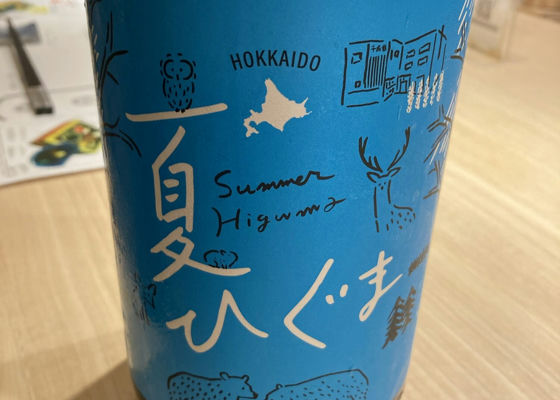 HOKKAIDO
夏ひぐま
Summer
Higuma